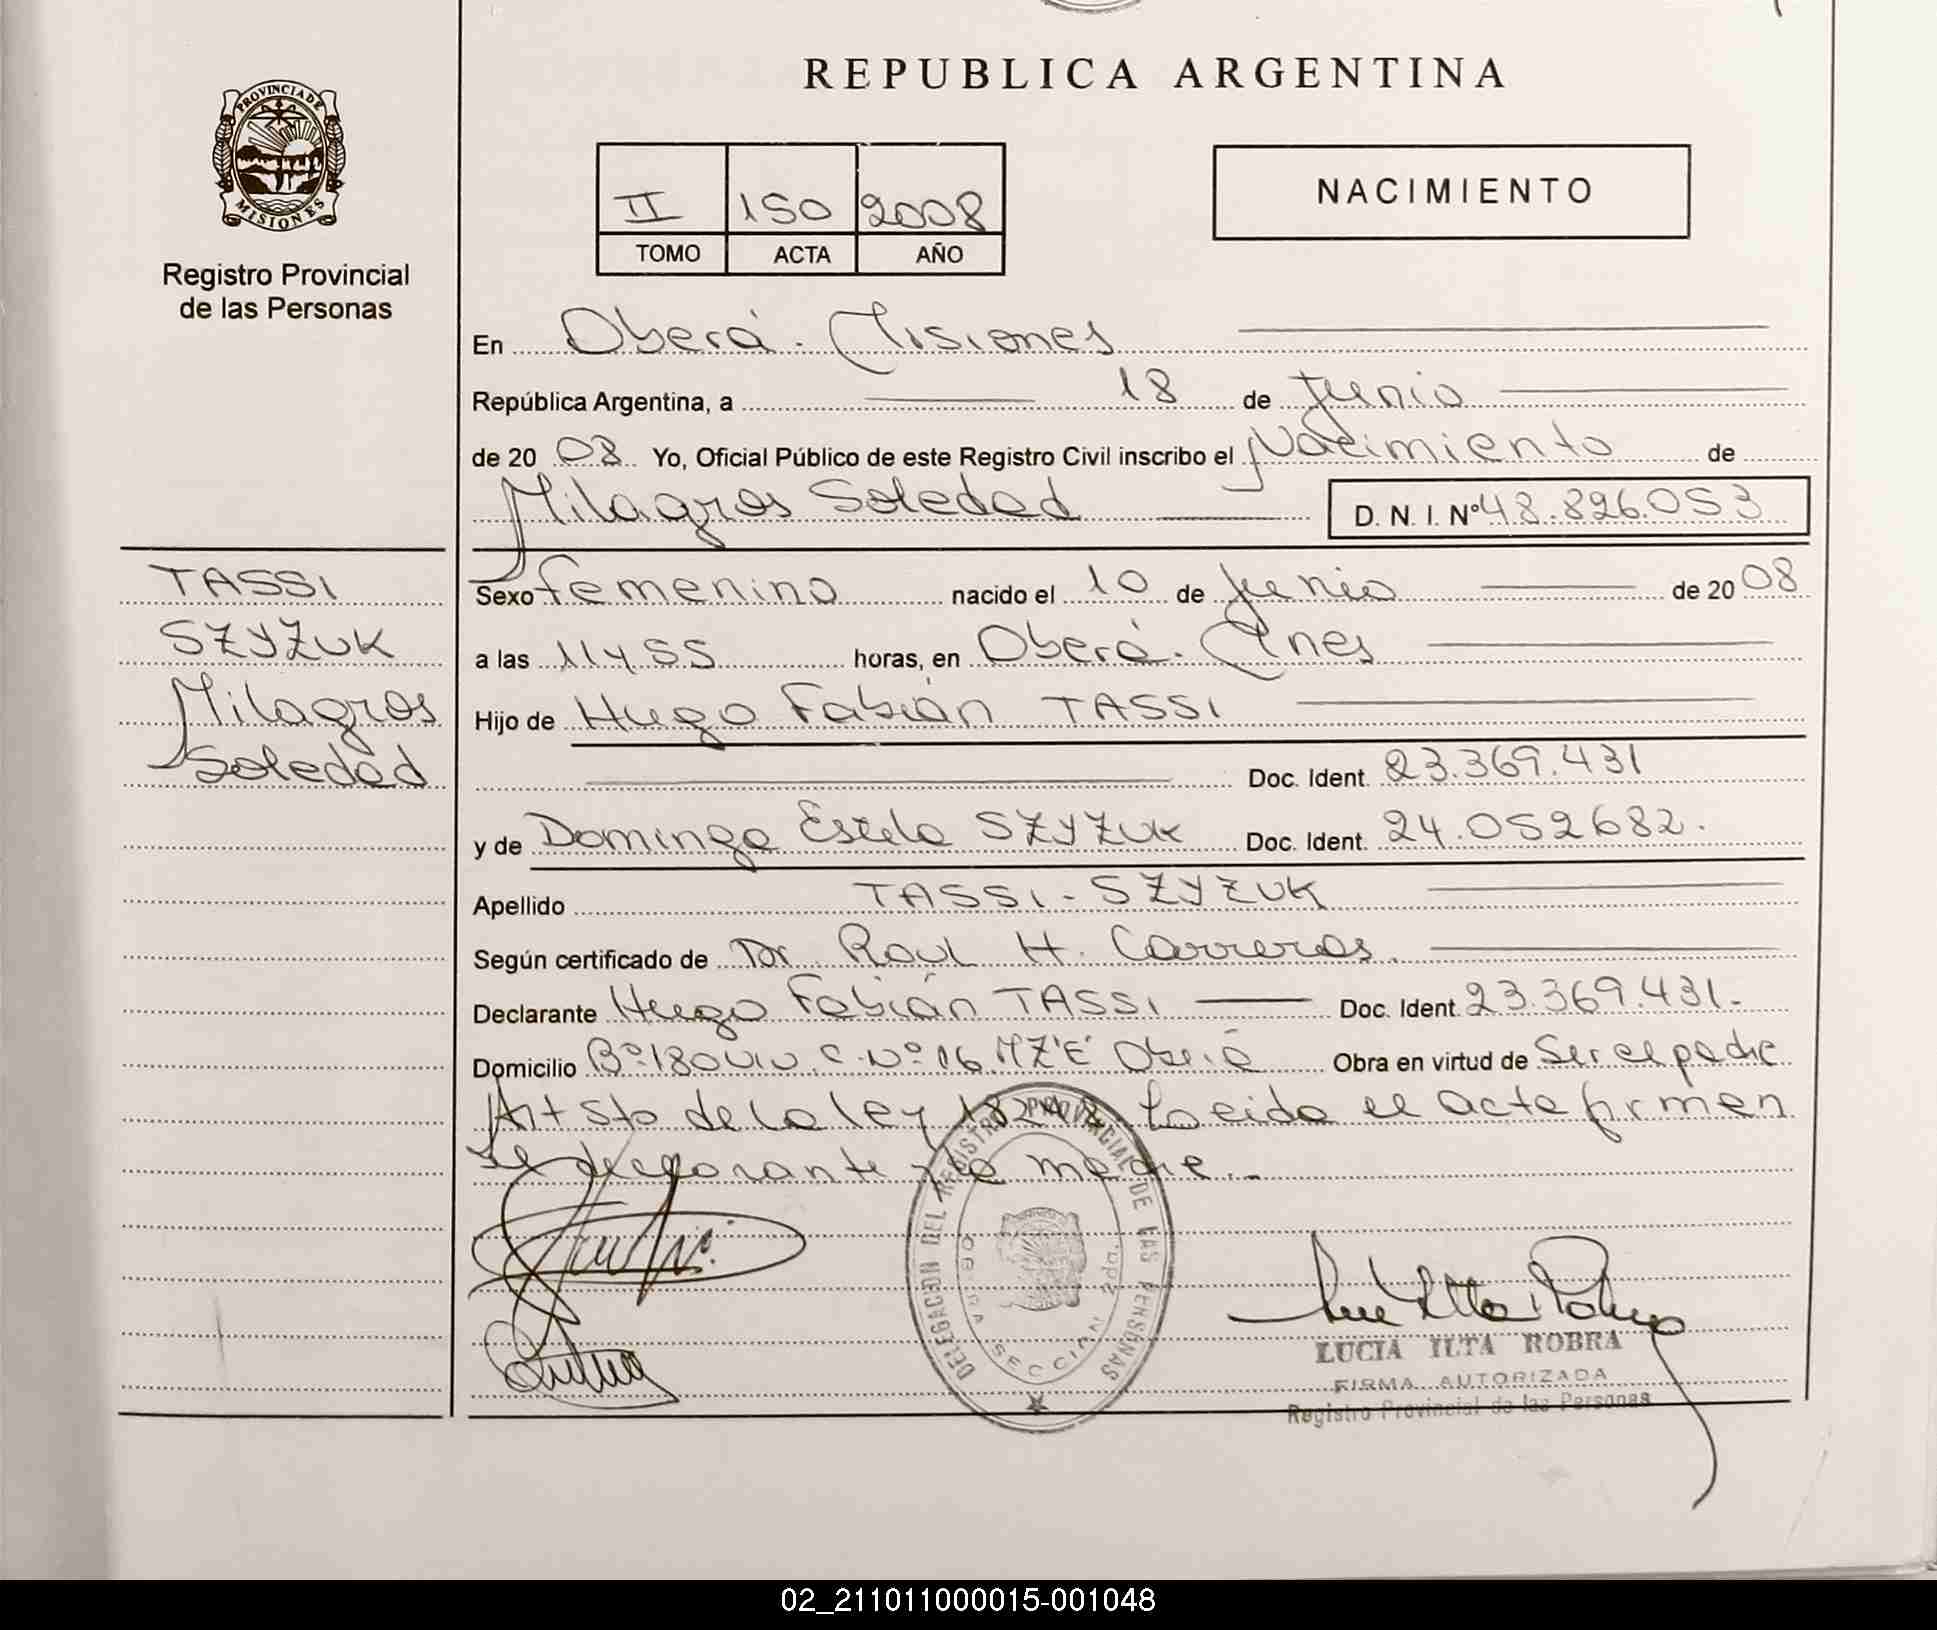 REPUBLICA ARGENTINA
PROVINCIA DE MISIONES
Registro Provincial
de las Personas
II 150 2008
TOMO ACTA AÑO
NACIMIENTO
En Oberá. Misiones
República Argentina, a 18 de Junio
de 20 08 Yo, Oficial Público de este Registro Civil inscribo el Nacimiento de
Milagros Soledad D. N. I. Nº 48.826.053
TASSI
SZYZUK
Milagros
Soledad
Sexo femenino nacido el 10 de Junio de 20 08
a las 11 y 55 horas, en Oberá. Mnes
Hijo de Hugo Fabián TASSI
Doc. Ident. 23.369.431
y de Dominga Estela SZYZUK Doc. Ident. 24.052682.
Apellido TASSI - SZYZUK
Según certificado de Dr. Raul H. Carreras.
Declarante Hugo Fabián TASSI Doc. Ident. 23.369.431.-
Domicilio Bº 180 Viv. C. Nº 16 MZ "E" Oberá Obra en virtud de Ser el padre
Art 5to de la ley Leida el acta firman
el declarante y la madre.-
DELEGACION DEL REGISTRO PROVINCIAL DE LAS PERSONAS
OBERA SECCION 2da.
LUCIA ILTA ROBRA
FIRMA AUTORIZADA
Registro Provincial de las Personas
02_211011000015-001048